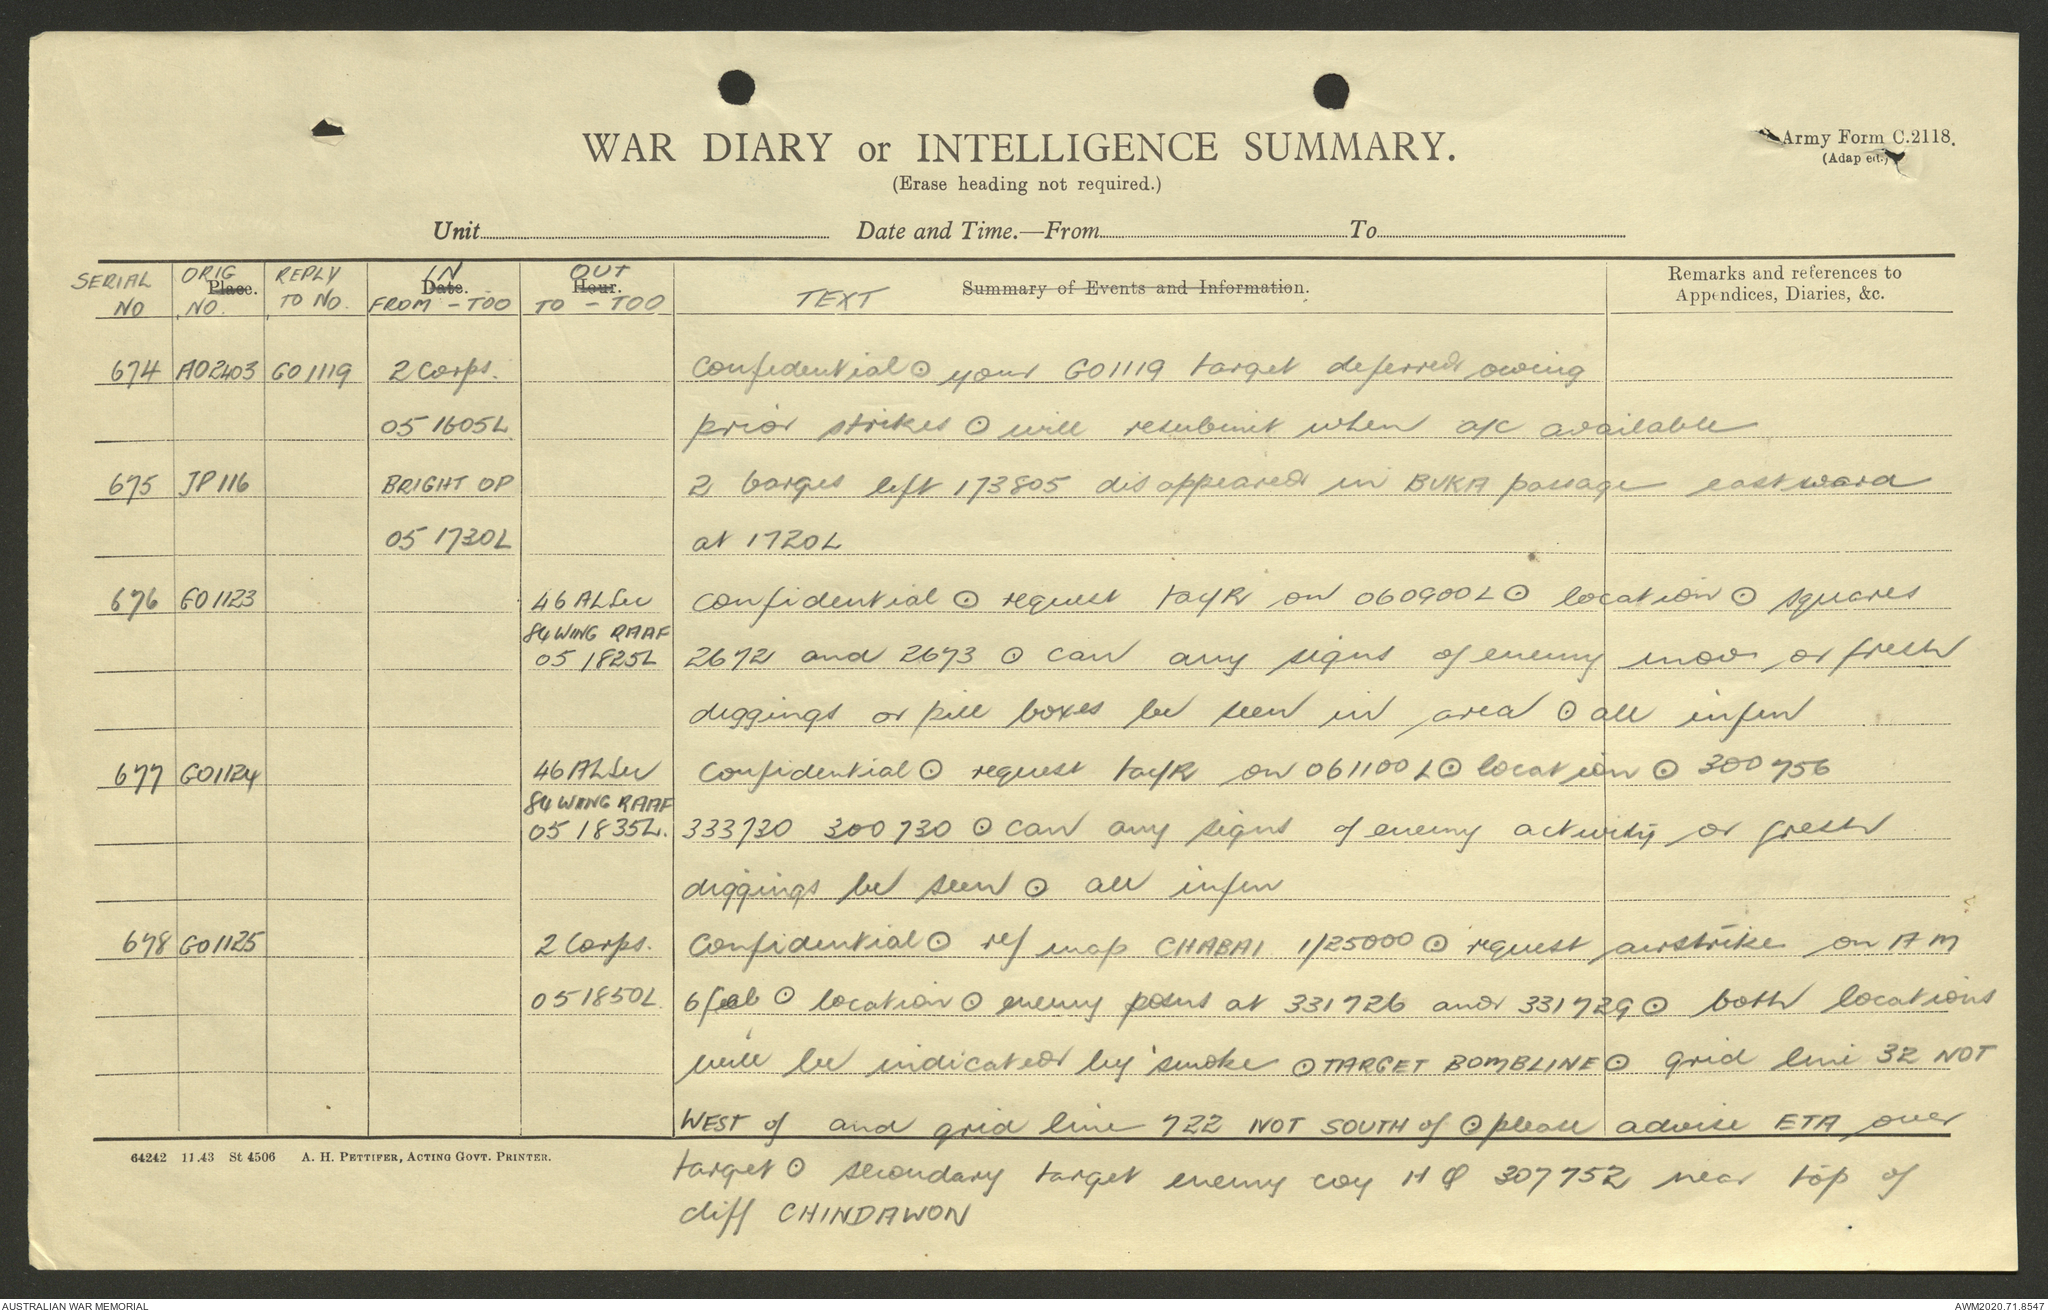 Army Form C.2118.
WAR DIARY or INTELLIGENCE SUMMARY.
(Adap ed.)
(Erase heading not required.)
Unit Date and Time.—From To
SERIAL NO ORIG Place. NO. REPLY TO NO. IN Date. FROM - TOO OUT Hour. TO - TOO TEXT Summary of Events and Information. Remarks and references to
Appendices, Diaries, &c.
674 AO2403 GO1119 2 Corps. Confidential ⊙ your GO1119 target deferred owing
05 1605L prior strikes ⊙ will resubmit when a/c available
675 JP116 BRIGHT OP 2 barges left 173805 disappeared in BUKA passage eastward
05 1730L at 1720L
676 GO1123 46 ALSec Confidential ⊙ request tac/R on 060900L ⊙ location ⊙ squares
84 WING RAAF
05 1825L 2672 and 2673 ⊙ can any signs of enemy mov or fresh
diggings or pill boxes be seen in area ⊙ all infm
677 GO1124 46 ALSec Confidential ⊙ request tac/R on 061100L ⊙ location ⊙ 300756
84 WING RAAF
05 1835L. 333730 300730 ⊙ can any signs of enemy activity or fresh
diggings be seen ⊙ all infm
678 GO1125 2 Corps. Confidential ⊙ ref map CHABAI 1/25000 ⊙ request airstrike on AM
05 1850L 6 feb ⊙ location ⊙ enemy posns at 331726 and 331729 ⊙ both locations
will be indicated by smoke ⊙ TARGET BOMBLINE ⊙ grid line 32 NOT
WEST of and grid line 722 NOT SOUTH of ⊙ please advise ETA over
target ⊙ secondary target enemy coy HQ 307752 near top of
cliff CHINDAWON
64242 11.43 St 4506 A. H. PETTIFER, ACTING GOVT. PRINTER.
AUSTRALIAN WAR MEMORIAL AWM2020.71.8547